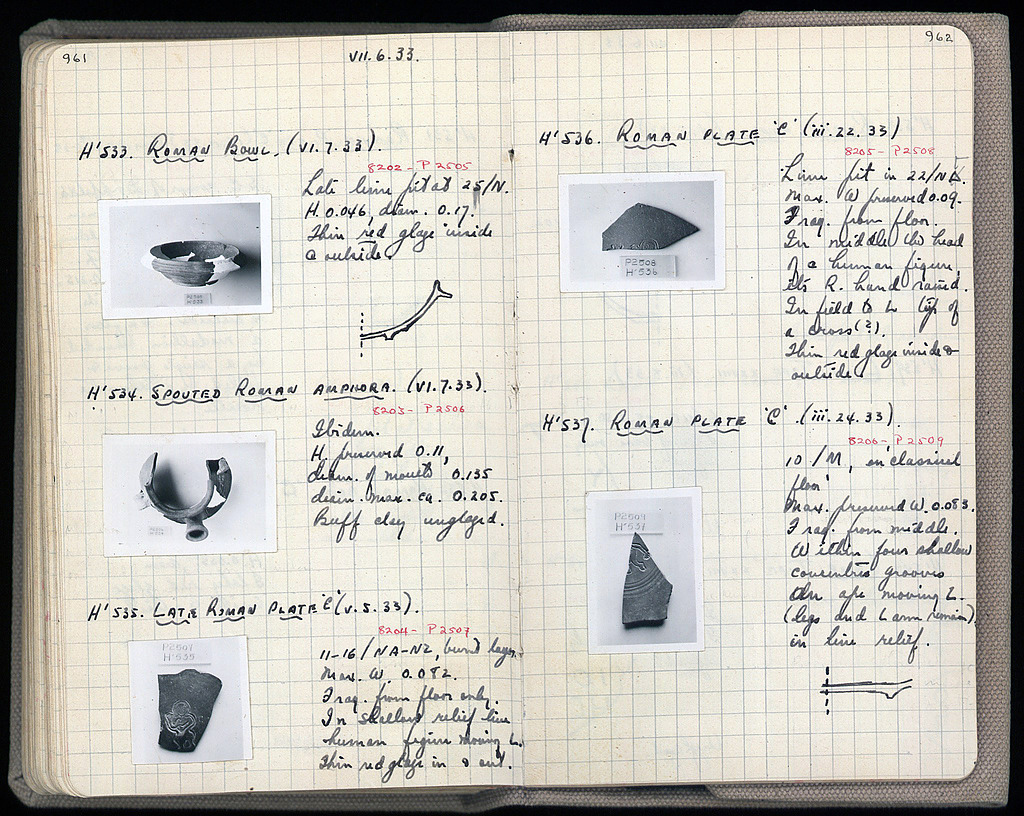 961
VII.6.33.
H'533. ROMAN BOWL. (VI.7.33).
8202 - P 2505
Late lime pit at 25/N.
H. 0.046, diam. 0.17.
Thin red glaze inside
& outside.
H'534. SPOUTED ROMAN AMPHORA. (VI.7.33).
8203 - P 2506
Ibidem.
H. preserved 0.11,
diam. of mouth 0.135
diam. max. ca. 0.205.
Buff clay unglazed.
H'535. LATE ROMAN PLATE 'C' (V.5.33).
8204 - P 2507
P2507
H'535
11-16/NA-NZ, burnt layer
Max. W. 0.082.
Frag. from floor only.
In shallow relief line
human figure moving L.
Thin red glaze in & out.
962
H'536. ROMAN PLATE 'C' (iii.22.33)
8205 - P2508
P2508
H'536
Lime pit in 22/
Max. W preserved 0.09.
Frag. from floor.
In middle the head
of a human figure,
its R. hand raised.
In field to L top of
a cross(?).
Thin red glaze inside &
outside.
H'537. ROMAN PLATE 'C'. (iii.24.33).
8206 - P2509
P2509
H'537
10/M, on 'classical
floor'
Max. preserved W. 0.083.
Frag. from middle.
Within four shallow
concentric grooves
an ape moving L.
(legs and L arm remain)
in line relief.